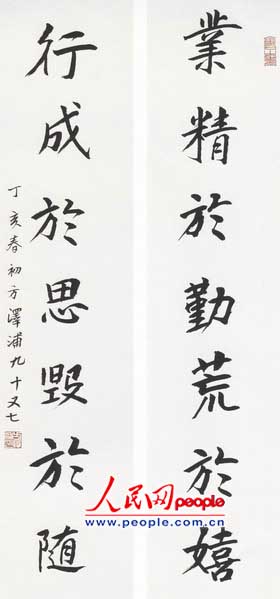 業精於勤荒於嬉
行成於思毀於隨
丁亥春初方澤浦九十又七
人民网people
www.people.com.cn